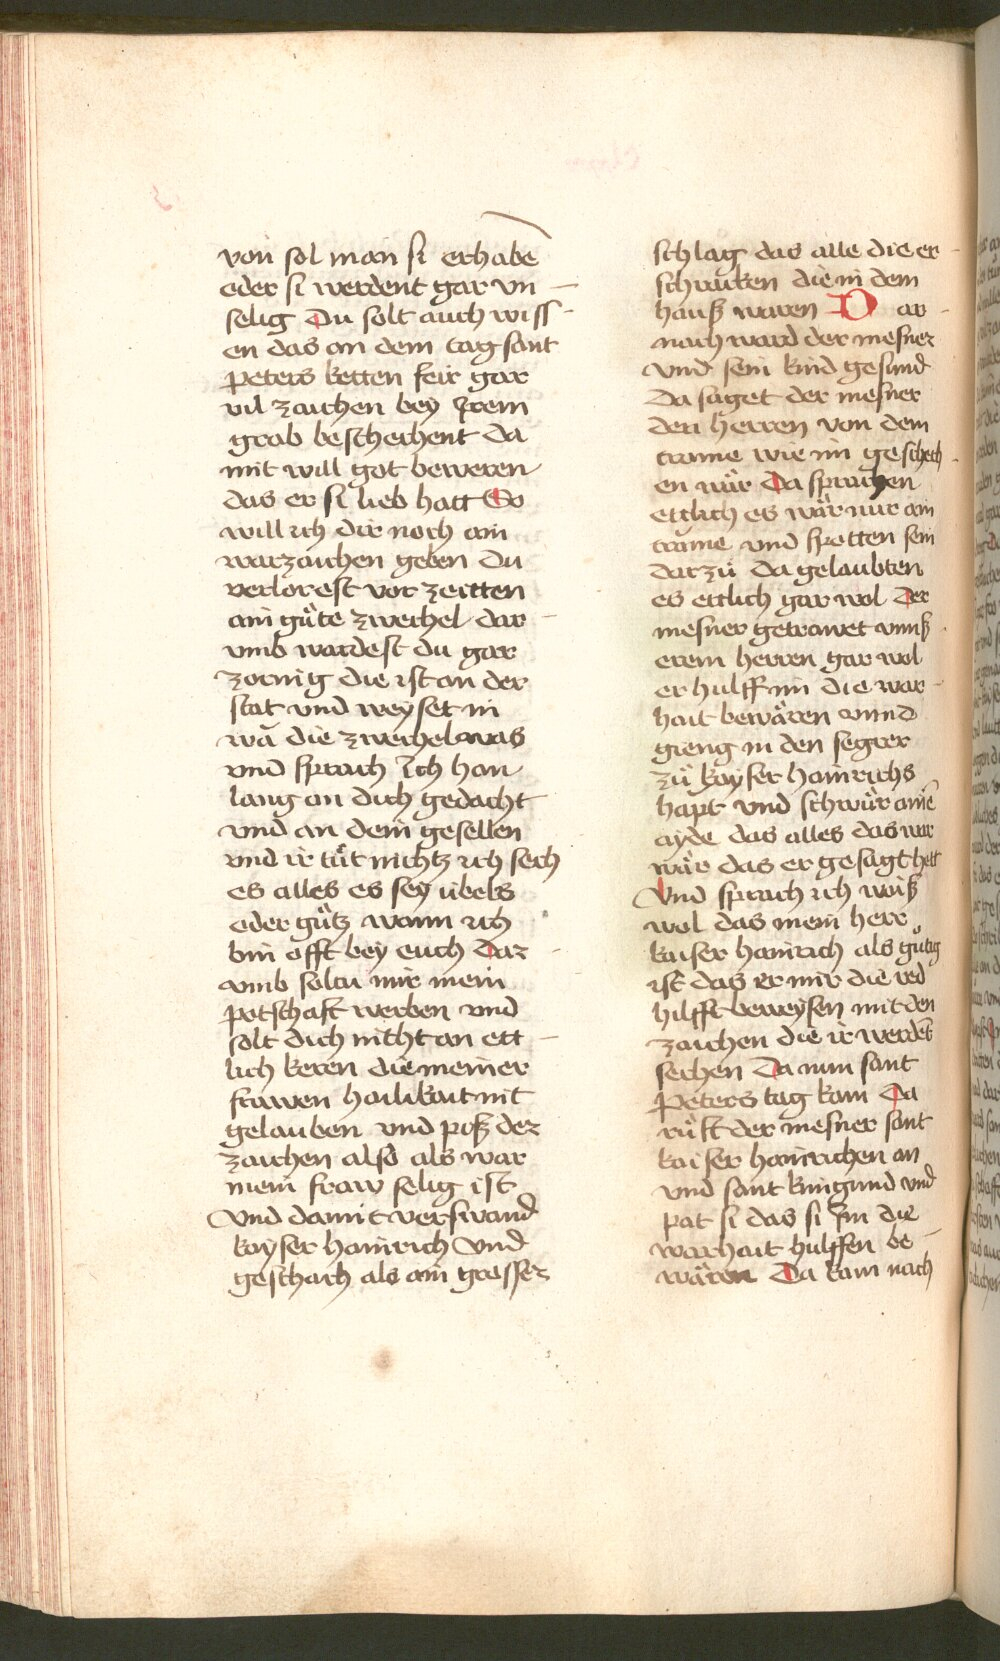 von sol man si erhabē
oder si werdent gar vn
selig Du solt auch wiss
en das an dem tag sant
peters ketten feir gar
vil zaichen bey Irem
grab beschechent da
mit will got beweren
das er si lieb hatt So
will ich dir noch ain
warzaichen geben Du
verlorest vor zeitten
ain gůte zwechel dar
vmb wardest du gar
zornig die ist an der
stat vnd weyset in
wa die zwechel was
vnd sprach Ich han
lang an dich gedacht
vnd an dein gesellen
vnd ir tůt nichtz ich sech
es alles es sey übels
oder gůtz wann ich
bin offt bey euch Dar
vmb soltu mir mein
potschaft werben vnd
solt dich nicht an ett
lich keren die meiner
frawen hailikait nit
gelauben vnd poß der
zaichen also als war
mein fraw selig ist
Vnd damit verswand
kayser hainrich Vnd
geschach als ain grosser
schlag das alle die er
schracken die in dem
hauß waren Dar
nach ward der mesner
vnd sein kind gesund
Da saget der mesner
den herren von dem
trame wie im geschech
en wär Da sprachen
ettlich es wär nur ain
trame vnd spotten sein
darzů da gelaubten
es ettlich gar wol Der
mesner getrawet vnnß
erem herren gar wol
er hulff im die war
hait bewären vnnd
gieng in den segrer
zů kayser hainrichs
hapt vnd schwůr ainē
ayde das alles das war
wär das er gesagt hett
Vnd sprach ich waiß
wol das mein herr
kaiser hainrich als gůtig
ist das er mir die red
hilfft beweysen mit den
zaichen die ir werdēt
sechen Da nun sant
Peters tag kam Da
růft der mesner sant
kaiser hainrichen an
vnd sant küngund vnd
pat si das si Im die
warhait hulffen be
wären Da kam nach